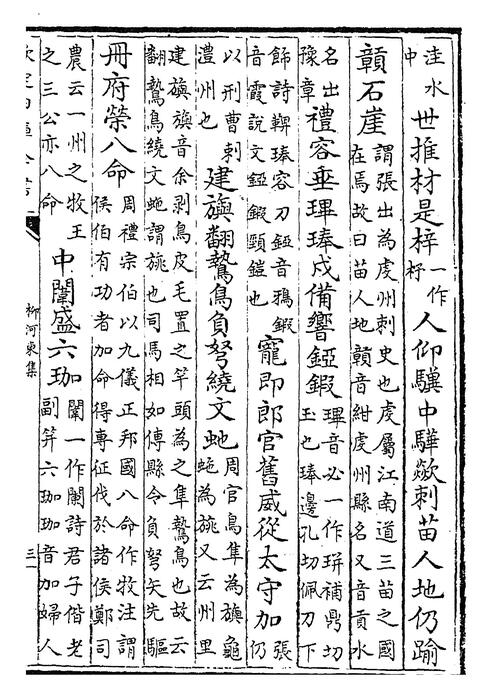 洼水
中
世推材是梓
一作
杍
人仰驥中驊歘刺苗人地仍踰
贑石崖
謂張出為虔州刺史也虔屬江南道三苗之國
在焉故曰苗人地贑音紺虔州縣名又音貢水
名出
豫章
禮容垂琕琫戍備響錏鍜
琕音必一作琕補鼎切
玉也琫邊孔切佩刀下
飾詩鞞琫容刀錏音鴉鍜
音霞說文錏鍜頸鎧也
寵即郎官舊威從太守加
張
仍
以刑曹刺
澧州也
建旟翻鷙鳥負弩繞文虵
周官鳥隼為旟龜
虵為旐又云州里
建旟旟音余剥鳥皮毛置之竿頭為之隼鷙鳥也故云
翻鷙鳥繞文虵謂旐也司馬相如傳縣令負弩矢先驅
冊府榮八命
周禮宗伯以九儀正邦國八命作牧注謂
侯伯有功者加命得專征伐於諸侯鄭司
農云一州之牧王
之三公亦八命
中闈盛六珈
闈一作閫詩君子偕老
副笄六珈珈音加婦人
柳河東集
三